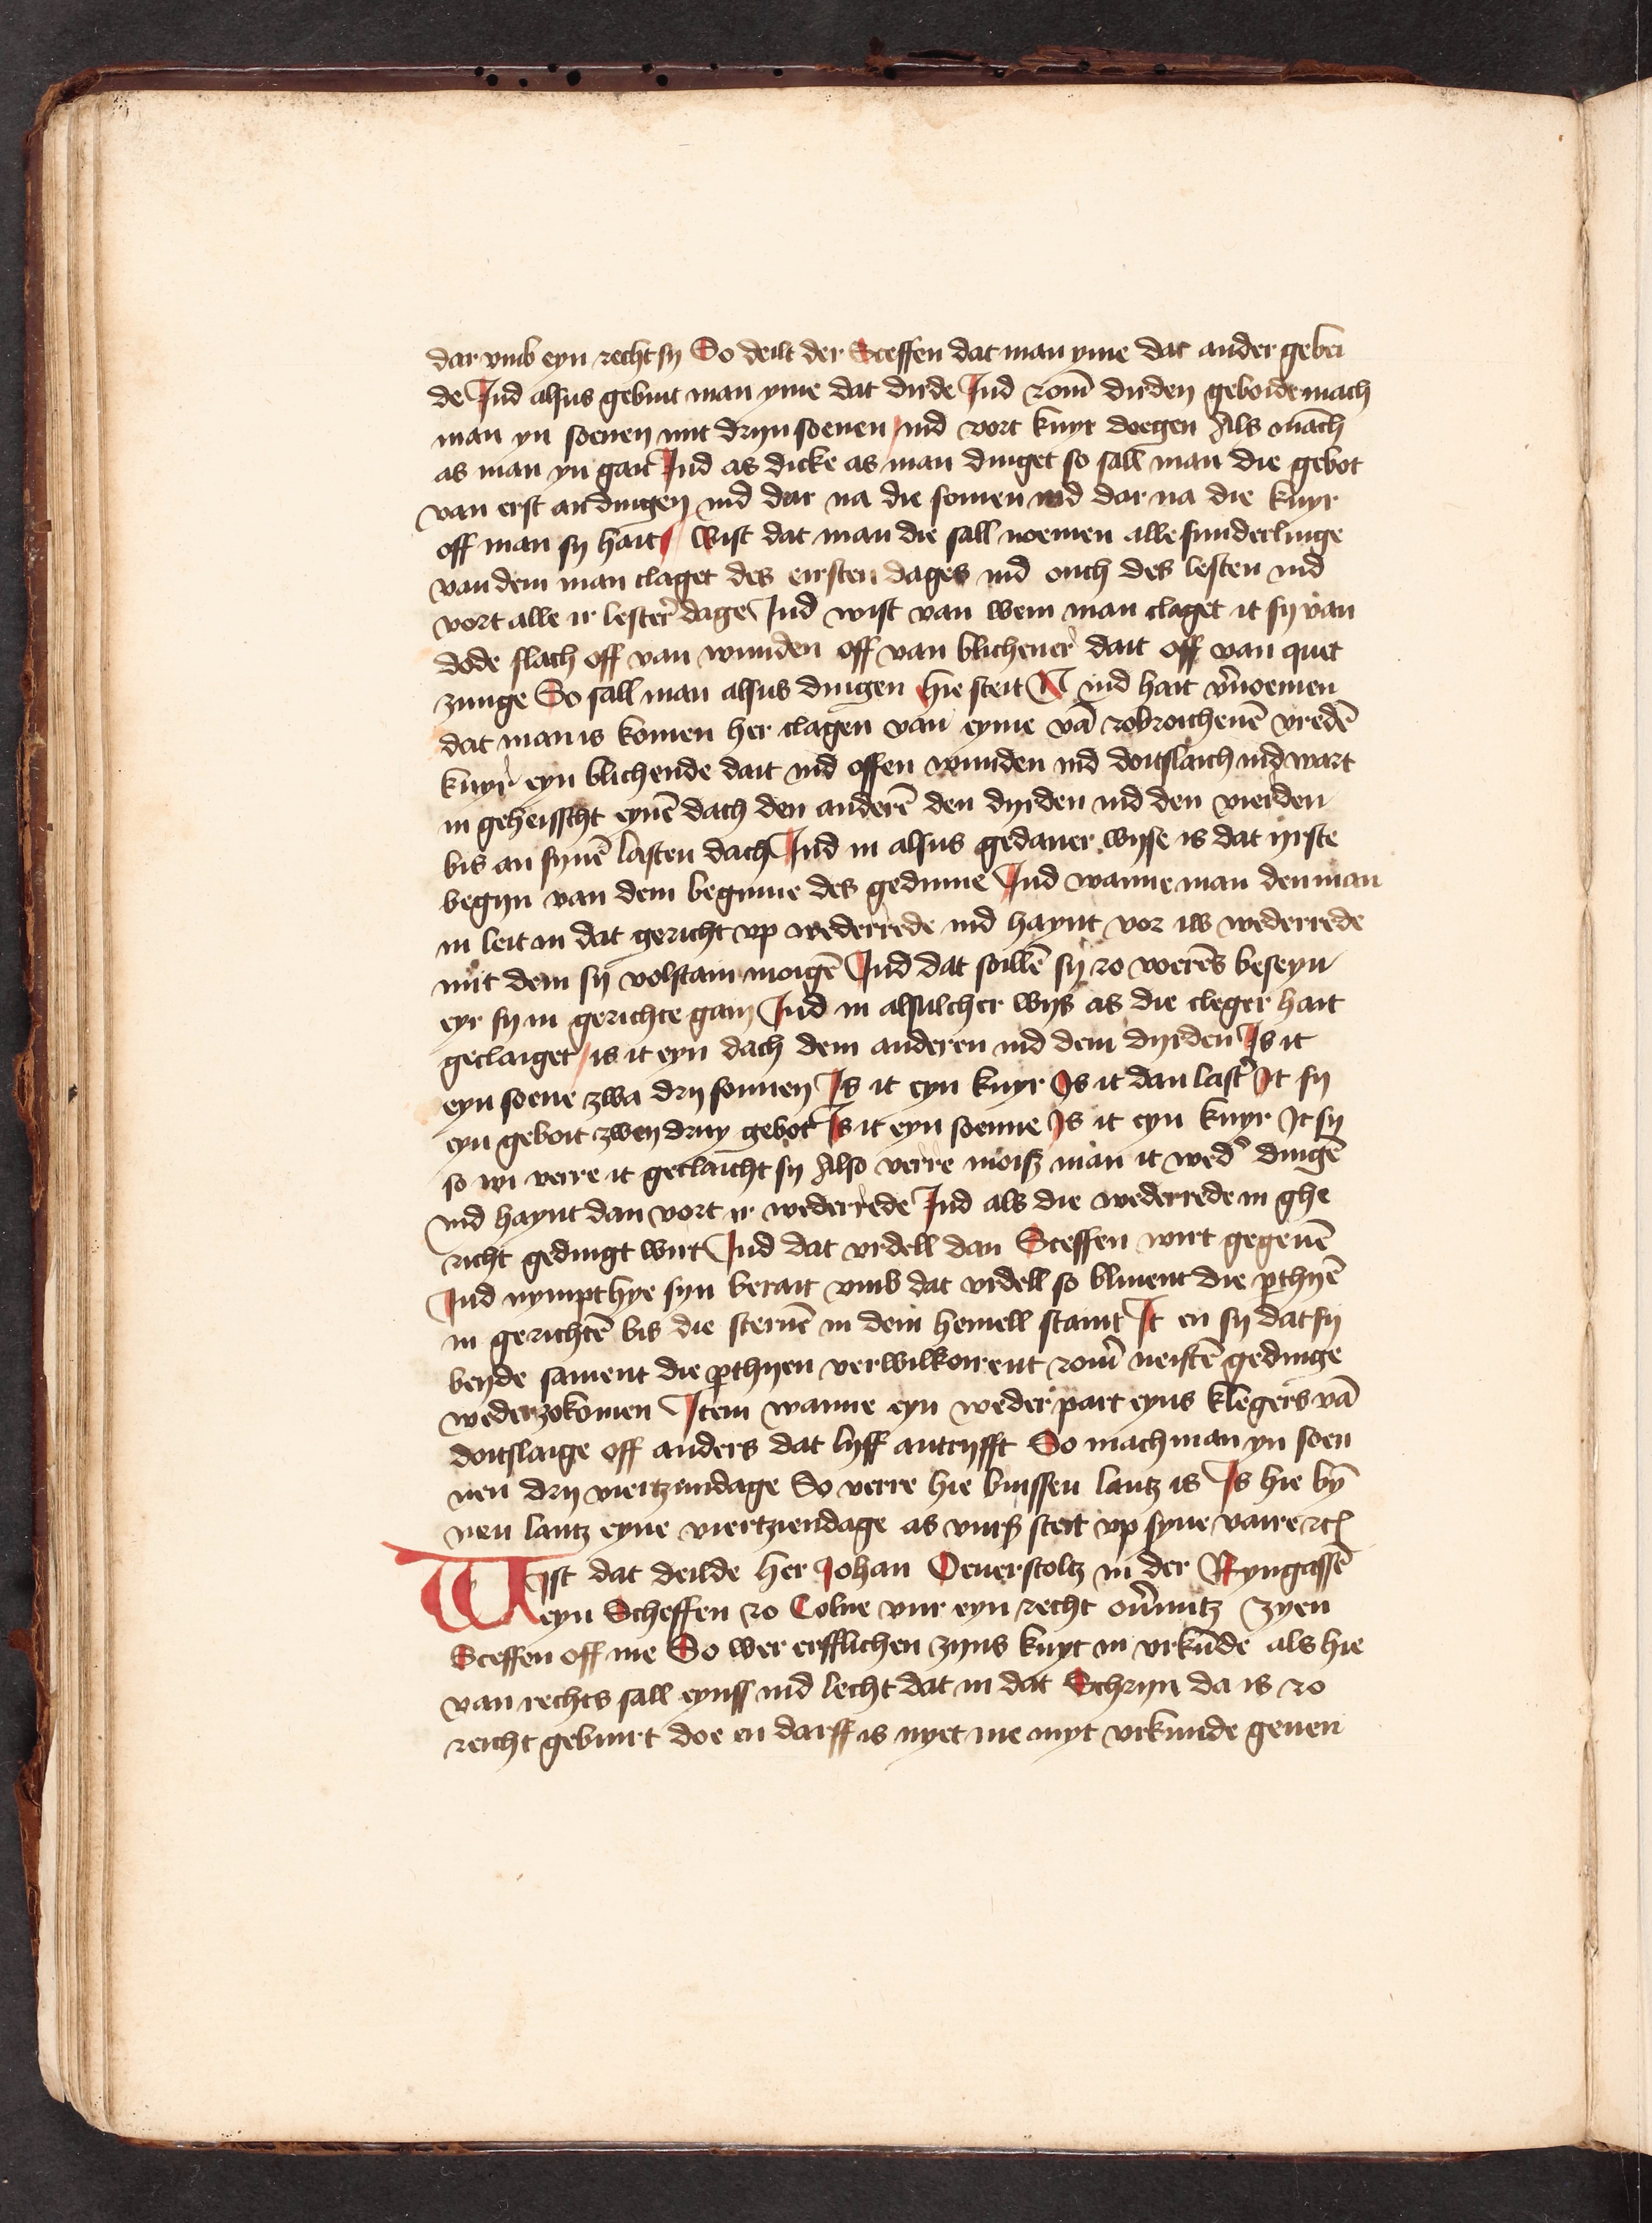 dar vmb eyn recht sy So deilt der Sceffen dat man yme dat ander gebei
de Ind alsus gebuit man yme dat dirde Ind zom̄ dirden geboide mach
man yn soenen mit dryn soenen ind vort kuyr doegen Als manch
as man yn gait Ind as dicke as man dinget so sall man die gebot
van erst an dingen ind dar na die sonnen ind dar na die kuyr
off man sy hait Wist dat man die sall noemen alle sunderlinge
van dem man claget des eirsten dages ind ouch des lesten ind
vort alle ir lester dage Ind wist van wem man claget it sy van
dode slach off van wunden off van blichener dait off van quet
zunge So sall man alsus dingen hie steit N ind hait v̄noemen
dat man is komen her clagen van eyme vā zobroichenē vredē
kuyr eyn blichende dait ind offen wunden ind doitslaich ind wart
in geheisscht eynē dach den anderē den dyrden ind den vierden
bis an synē lasten dach Ind in alsus gedaner wyse is dat yrste
begyn van dem beginne des gedinne Ind wanne man den man
in leit in dat gericht vp wederrede ind haynt vor iw wederrede
mit dem sy volstain moigē Ind dat soillē sy zo voerēs beseyn
eyr sy in gerichte gain Ind in alsulcher wys as die cleger hait
geclaiget is it eyn dach dem anderen ind dem dyrden Is it
eyn soene zwa dry sonnen Is it eyn kuyr Is it dan last' It sy
eyn geboit zwey druy gebot Is it eyn soenne Is it eyn kuyr It sy
so wi verre it geclaicht sy Also verre moisz man it wed' dingē
ind haynt dan vort ir wederrede Ind als die wederrede in ghe
richt gedingt wirt Ind dat vrdell dan Sceffen wirt gegeuē
Ind nympt hye syn berait vmb dat vrdell so bliuent die p̱thyē
in gerichtē bis die sternē in dem hemell staint It en sy dat sy
beyde sament die p̱thyen verwilkoirent zom̄ neistē gedinge
wederzokomen Item wanne eyn weder part eyns klegers vā
doitslaige off anders dat lyff antryfft So mach man yn soen
nen dry viertzindage So verre hie buissen lantz is Is hie by̅
nen lantz eyne viertziendage as vurß steit vp syne vaire zc̄
Wist dat deilde her Johan Oeuerstoltz in der Ryngassē
eyn Scheffen zo Colne vur eyn recht ouermitz zyen
Sceffen off me So wer erfflichen zyns kuyt in vrkūde als hie
van rechts sall eynss ind lecht dat in dat Schryn da is zo
reicht gebuirt doe en darff is nyet me myt vrkunde geuen